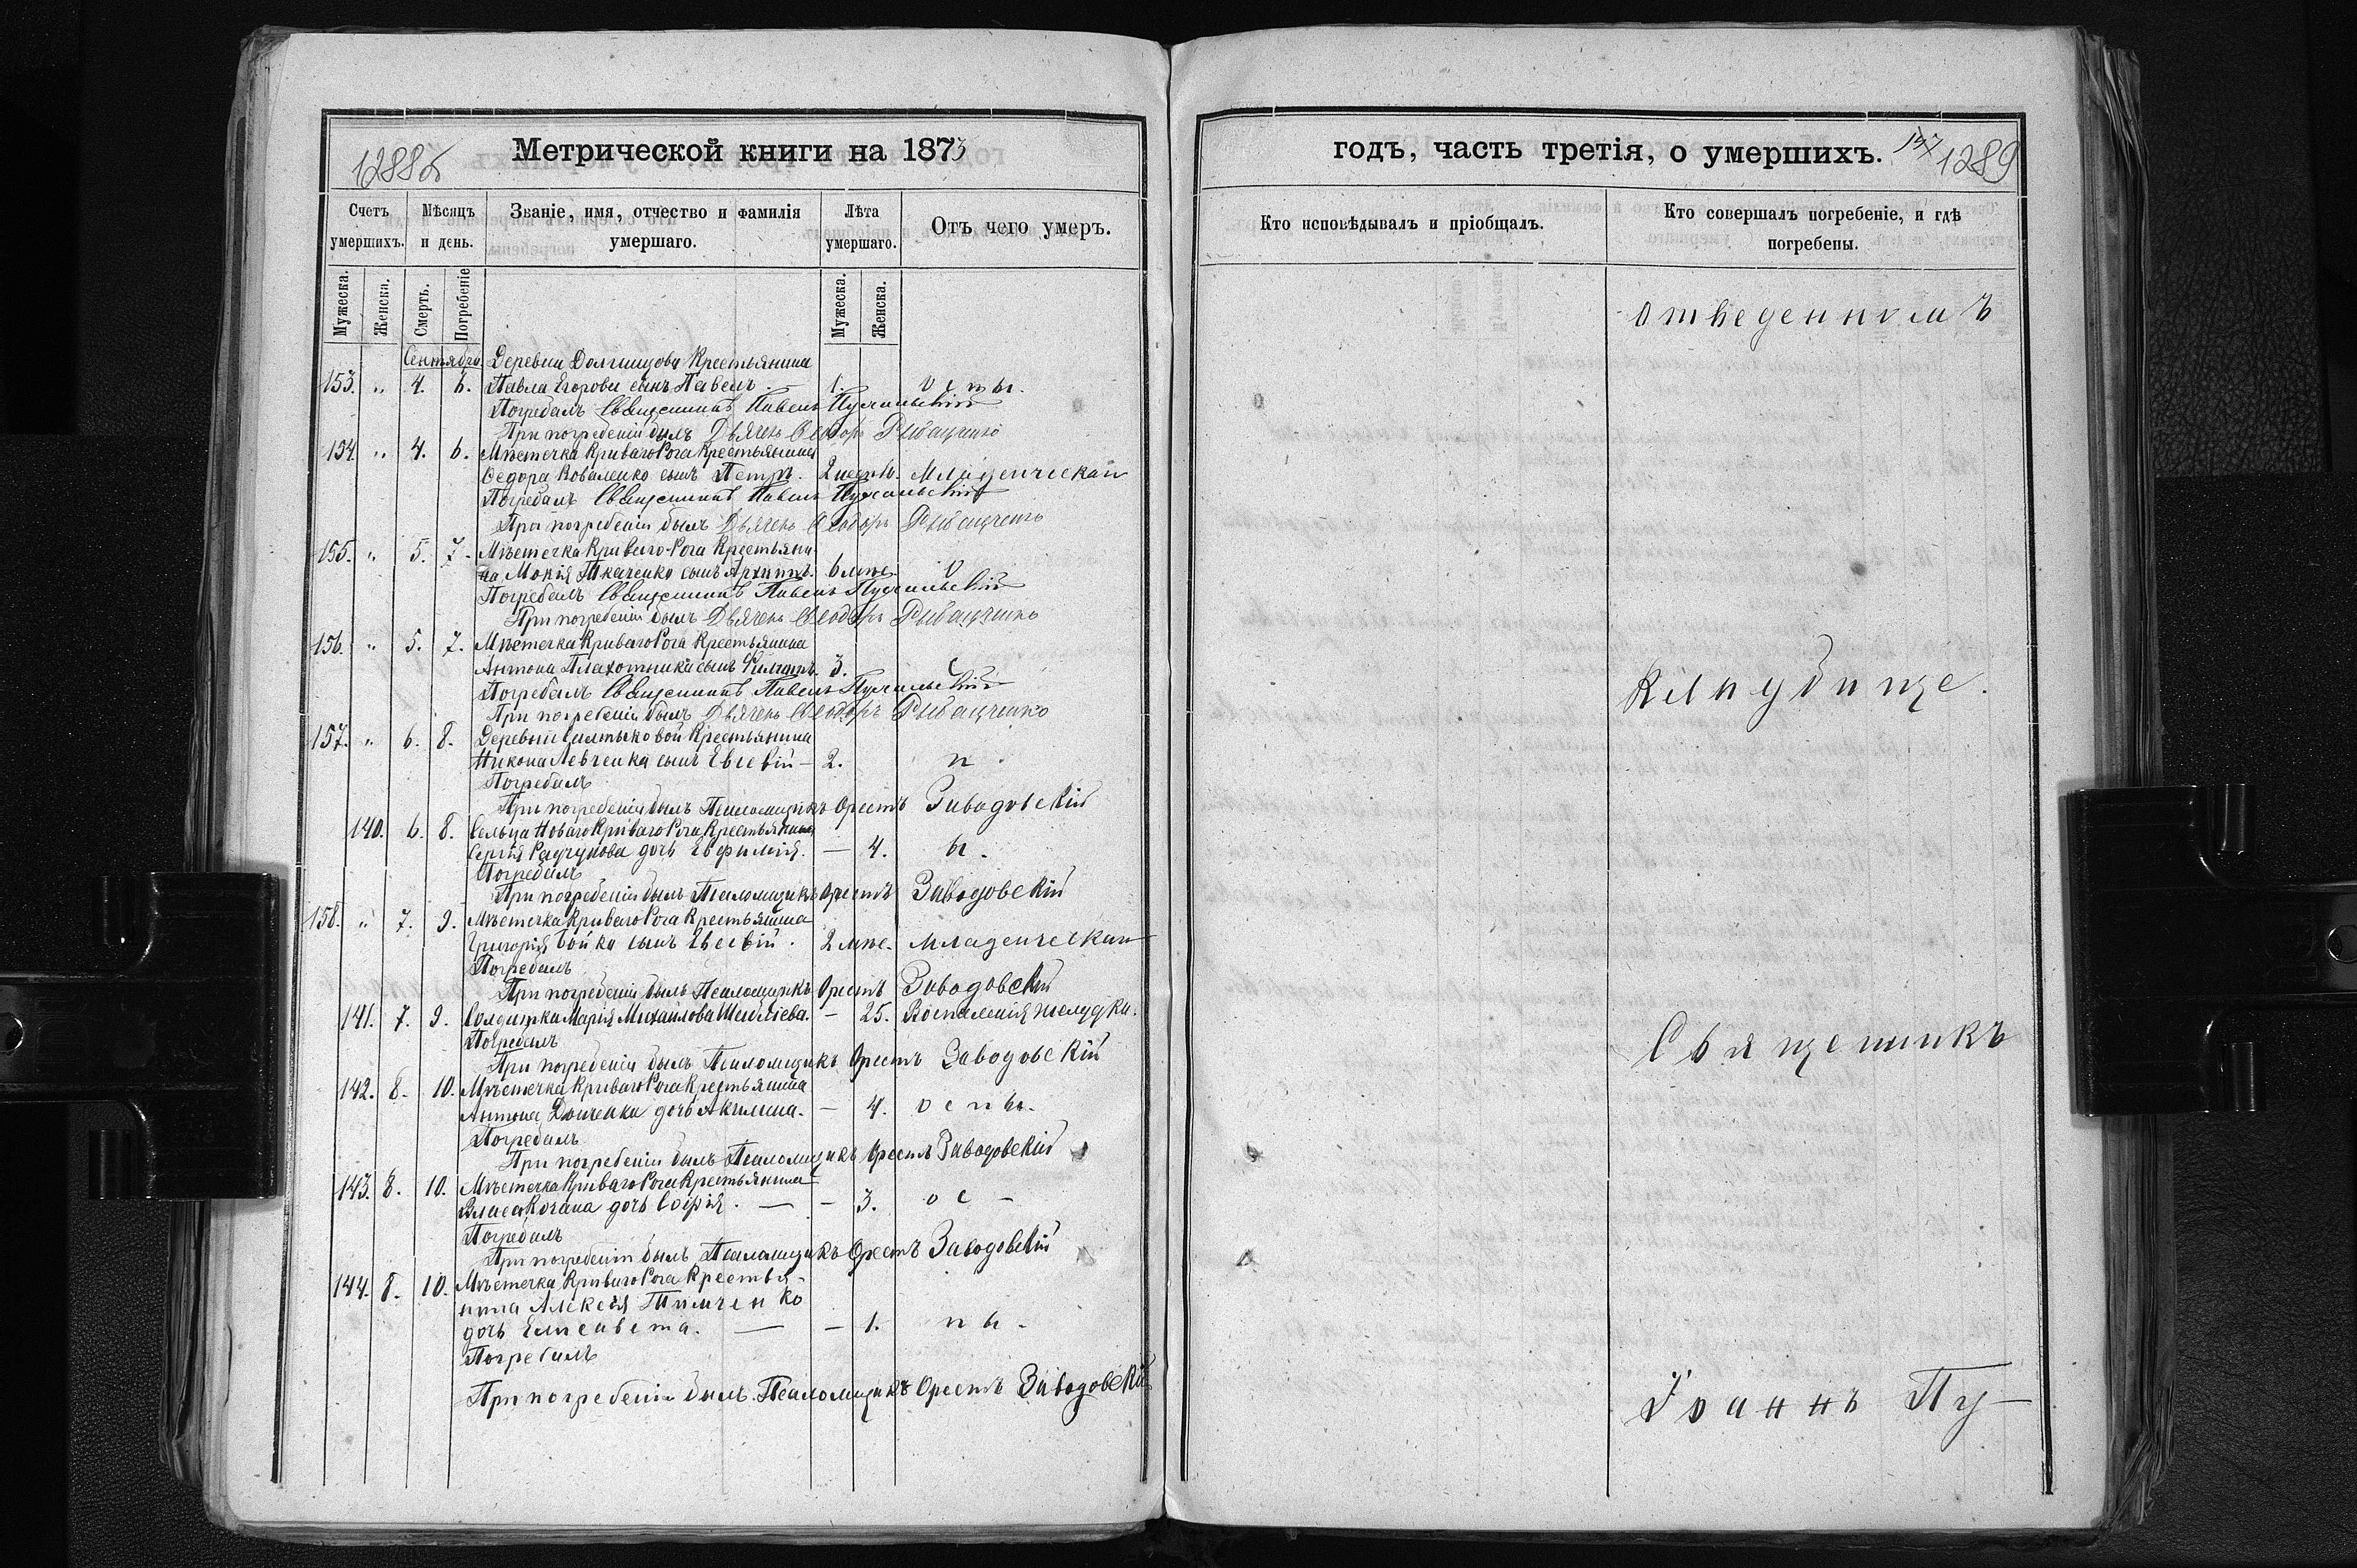 Метрической книги на 1873
1288б
Счетъ умершихъ.
Мѣсяцъ и день.
Званіе, имя, отчество и фамилія умершаго.
Лѣта умершаго.
Отъ чего умеръ.
Мужеска.
Женска.
Смерть.
Погребеніе
Мужеска.
Женска.
Сентябрь. Деревни Долгинцова Крестьянина
153. " 4. 6. Павла Егорова сынъ Павелъ. 1. оспы.
Погребалъ Священникъ Павелъ
При погребеніи былъ Дьячекъ Ѳеодоръ Рыбащенко
154. " 4. 6. Мѣстечка Криваго Рога Крестьянина
Ѳедора Коваленко сынъ Петръ. 2 Младенческая
Погребалъ Священникъ Павелъ
При погребеніи былъ Дьячекъ Ѳеодоръ Рыбащенко
155. " 5. 7. Мѣстечка Криваго-Рога Крестьяни-
на Мокія Ткаченко сынъ Архиппъ. 6 мѣс. О
Погребалъ Священникъ Павелъ
При погребеніи былъ Дьячекъ Ѳеодоръ Рыбащенко
156. " 5. 7. Мѣстечка Криваго Рога Крестьянина
Антона Плахотника сынъ Филиппъ. 3. с
Погребалъ Священникъ Павелъ
При погребеніи былъ Дьячекъ Ѳеодоръ Рыбащенко
157. " 6. 8. Деревни Крестьянина
Никона Левченка сынъ Евсевій – 2. п.
Погребалъ
При погребеніи былъ Псаломщикъ Орестъ Заводовскій
140. 6. 8. Сельца Новаго Криваго Рога Крестьянина
Сергія дочь Евфимія. – 4. ы.
Погребалъ
При погребеніи былъ Псаломщикъ Орестъ Заводовскій
158. " 7. 9. Мѣстечка Криваго Рога Крестьянина
Григорія Бойка сынъ Евсевій. 2 мѣс. Младенческая
Погребалъ
При погребеніи былъ Псаломщикъ Орестъ Заводовскій
141. 7. 9. Солдатка Марія Михайлова – 25. Воспаленія желудка.
Погребалъ
При погребеніи былъ Псаломщикъ Орестъ Заводовскій
142. 8. 10. Мѣстечка Криваго Рога Крестьянина
Антона дочь Акилина. – 4. оспы.
Погребалъ
При погребеніи былъ Псаломщикъ Орестъ Заводовскій
143. 8. 10. Мѣстечка Криваго Рога Крестьянина
Власа Кочана дочь Софія. – – 3. ос –
Погребалъ
При погребеніи былъ Псаломщикъ Орестъ Заводовскій
144. 8. 10. Мѣстечка Криваго Рога Крестья-
нина Алексѣя Тимченко
дочь Елисавета. – – 1. пы.
Погребалъ
При погребеніи былъ Псаломщикъ Орестъ Заводовскій
годъ, часть третія, о умершихъ.
1289
Кто исповѣдывалъ и пріобщалъ.
Кто совершалъ погребеніе, и гдѣ погребены.
отведенномъ
Кладбище.
Священникъ
Іоаннъ Пу–